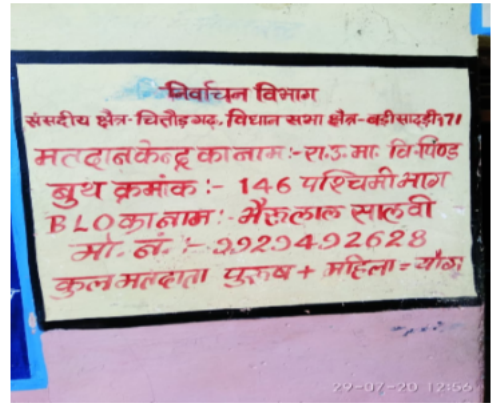 निर्वाचन विभाग
संसदीय क्षेत्र-चितौड़गढ़. विधान सभा क्षेत्र-बड़ीसादड़ी171
मतदान केन्द्र का नाम:-रा.उ.मा. वि.पिण्ड
बुथ क्रमांक:- 146 पश्चिमी भाग
BLO का नाम:-भैरूलाल सालवी
मो. नं. :- 9929492628
कुल मतदाता पुरूष + महिला = योग
29-07-20 12:56